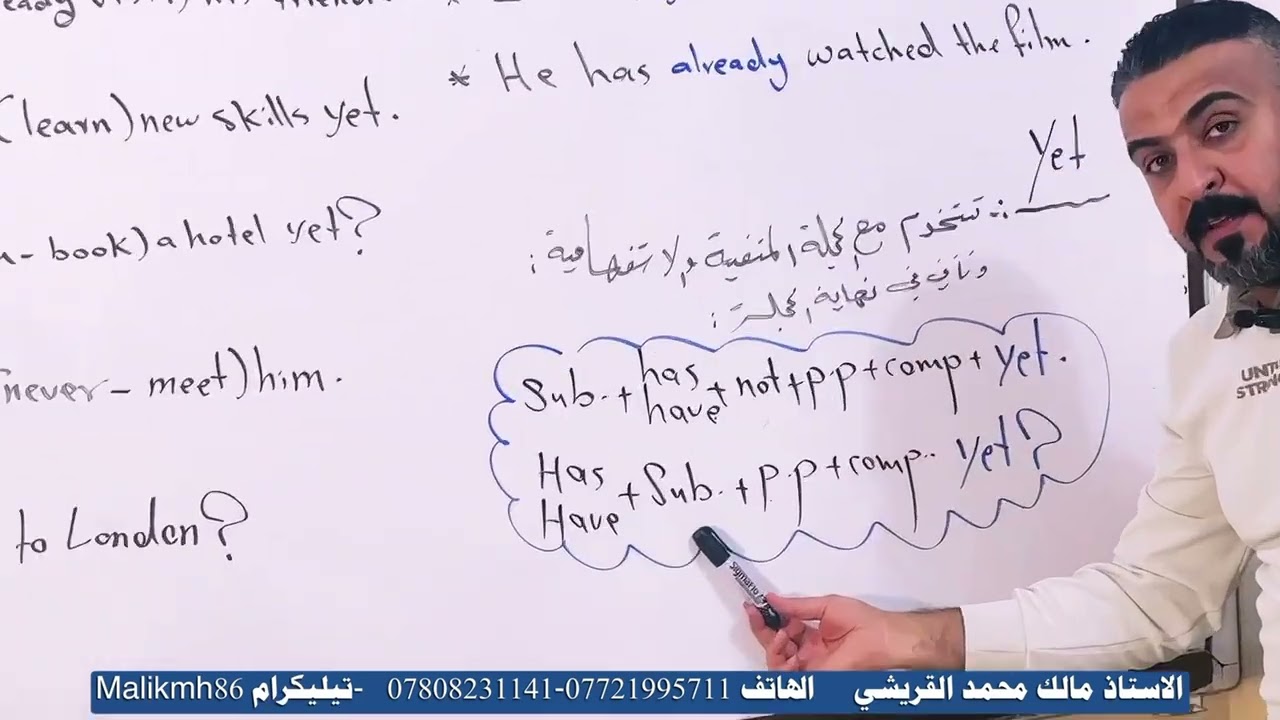 * He has already watched the film.
(learn) new skills yet.
Yet
- book) a hotel yet?
:- تستخدم مع الجملة المنفية والاستفهامية :
وتأتي في نهاية الجملة :
never - meet) him.
Sub. + has have + not + p.p + comp + yet.
Has Have + Sub. + p.p + comp.. yet?
to London?
UNIT
STRA
Sigmario
الاستاذ مالك محمد القريشي الهاتف 07721995711-07808231141 -تيليكرام Malikmh86